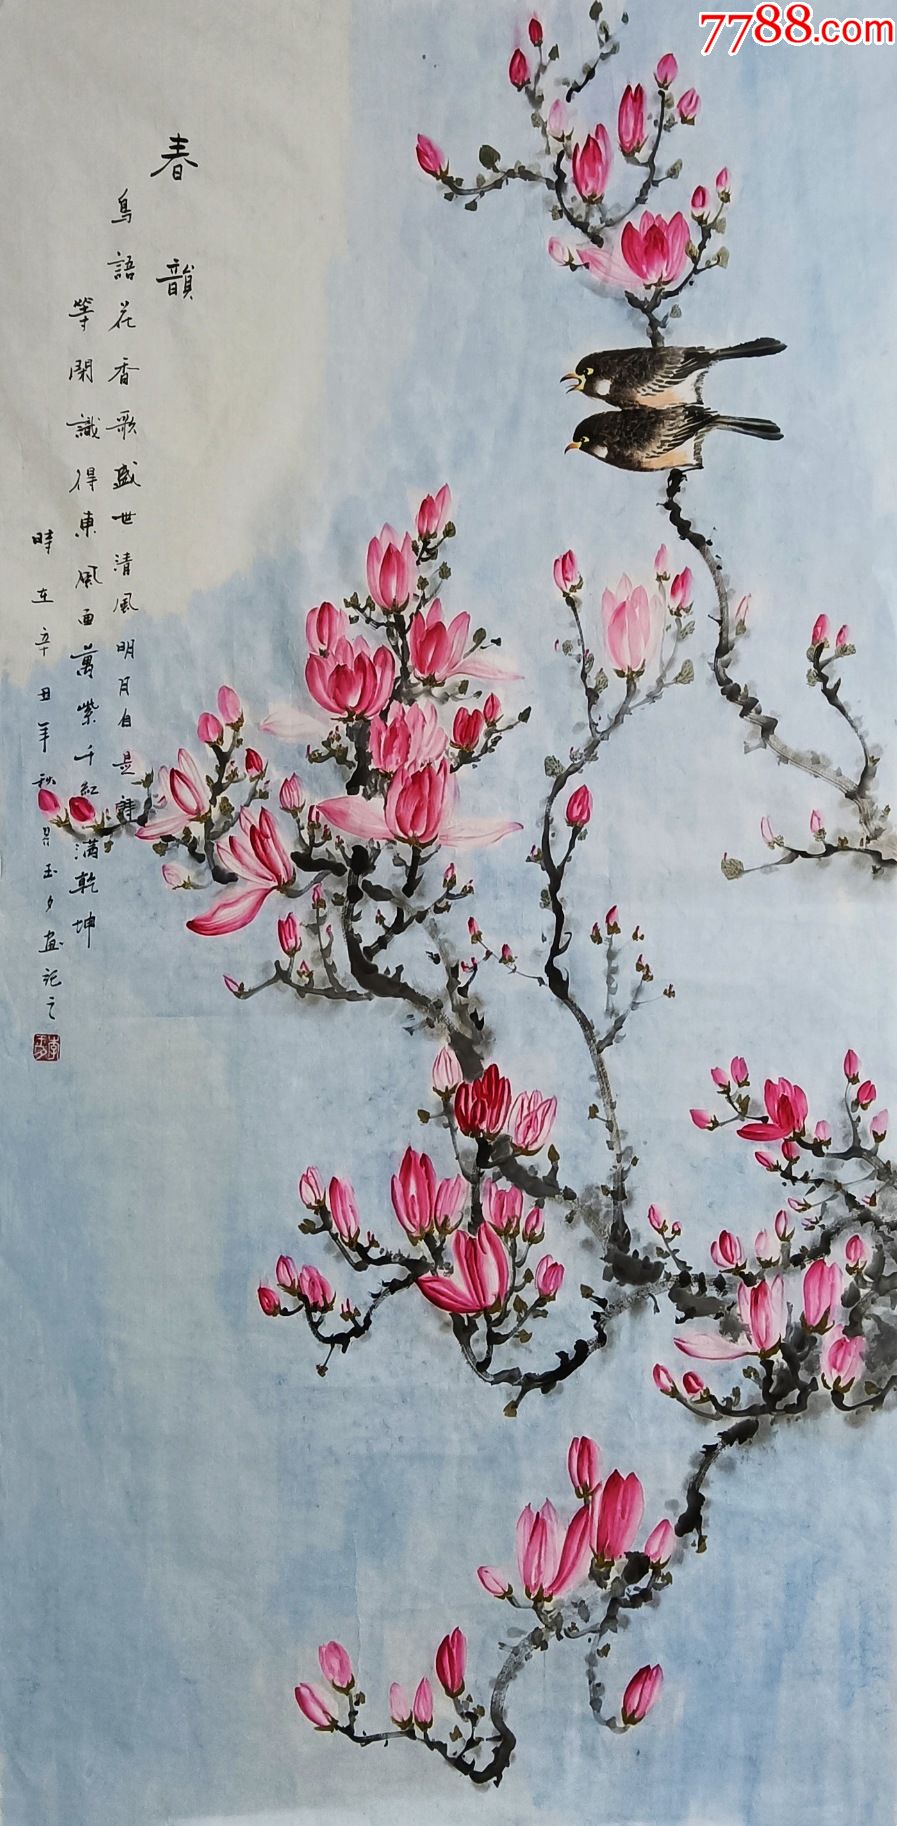 7788.com
春韻
鳥語花香歌盛世清風明月自是詩
等閑識得東風面萬紫千紅滿乾坤
時在辛丑年秋月玉夕畫記之